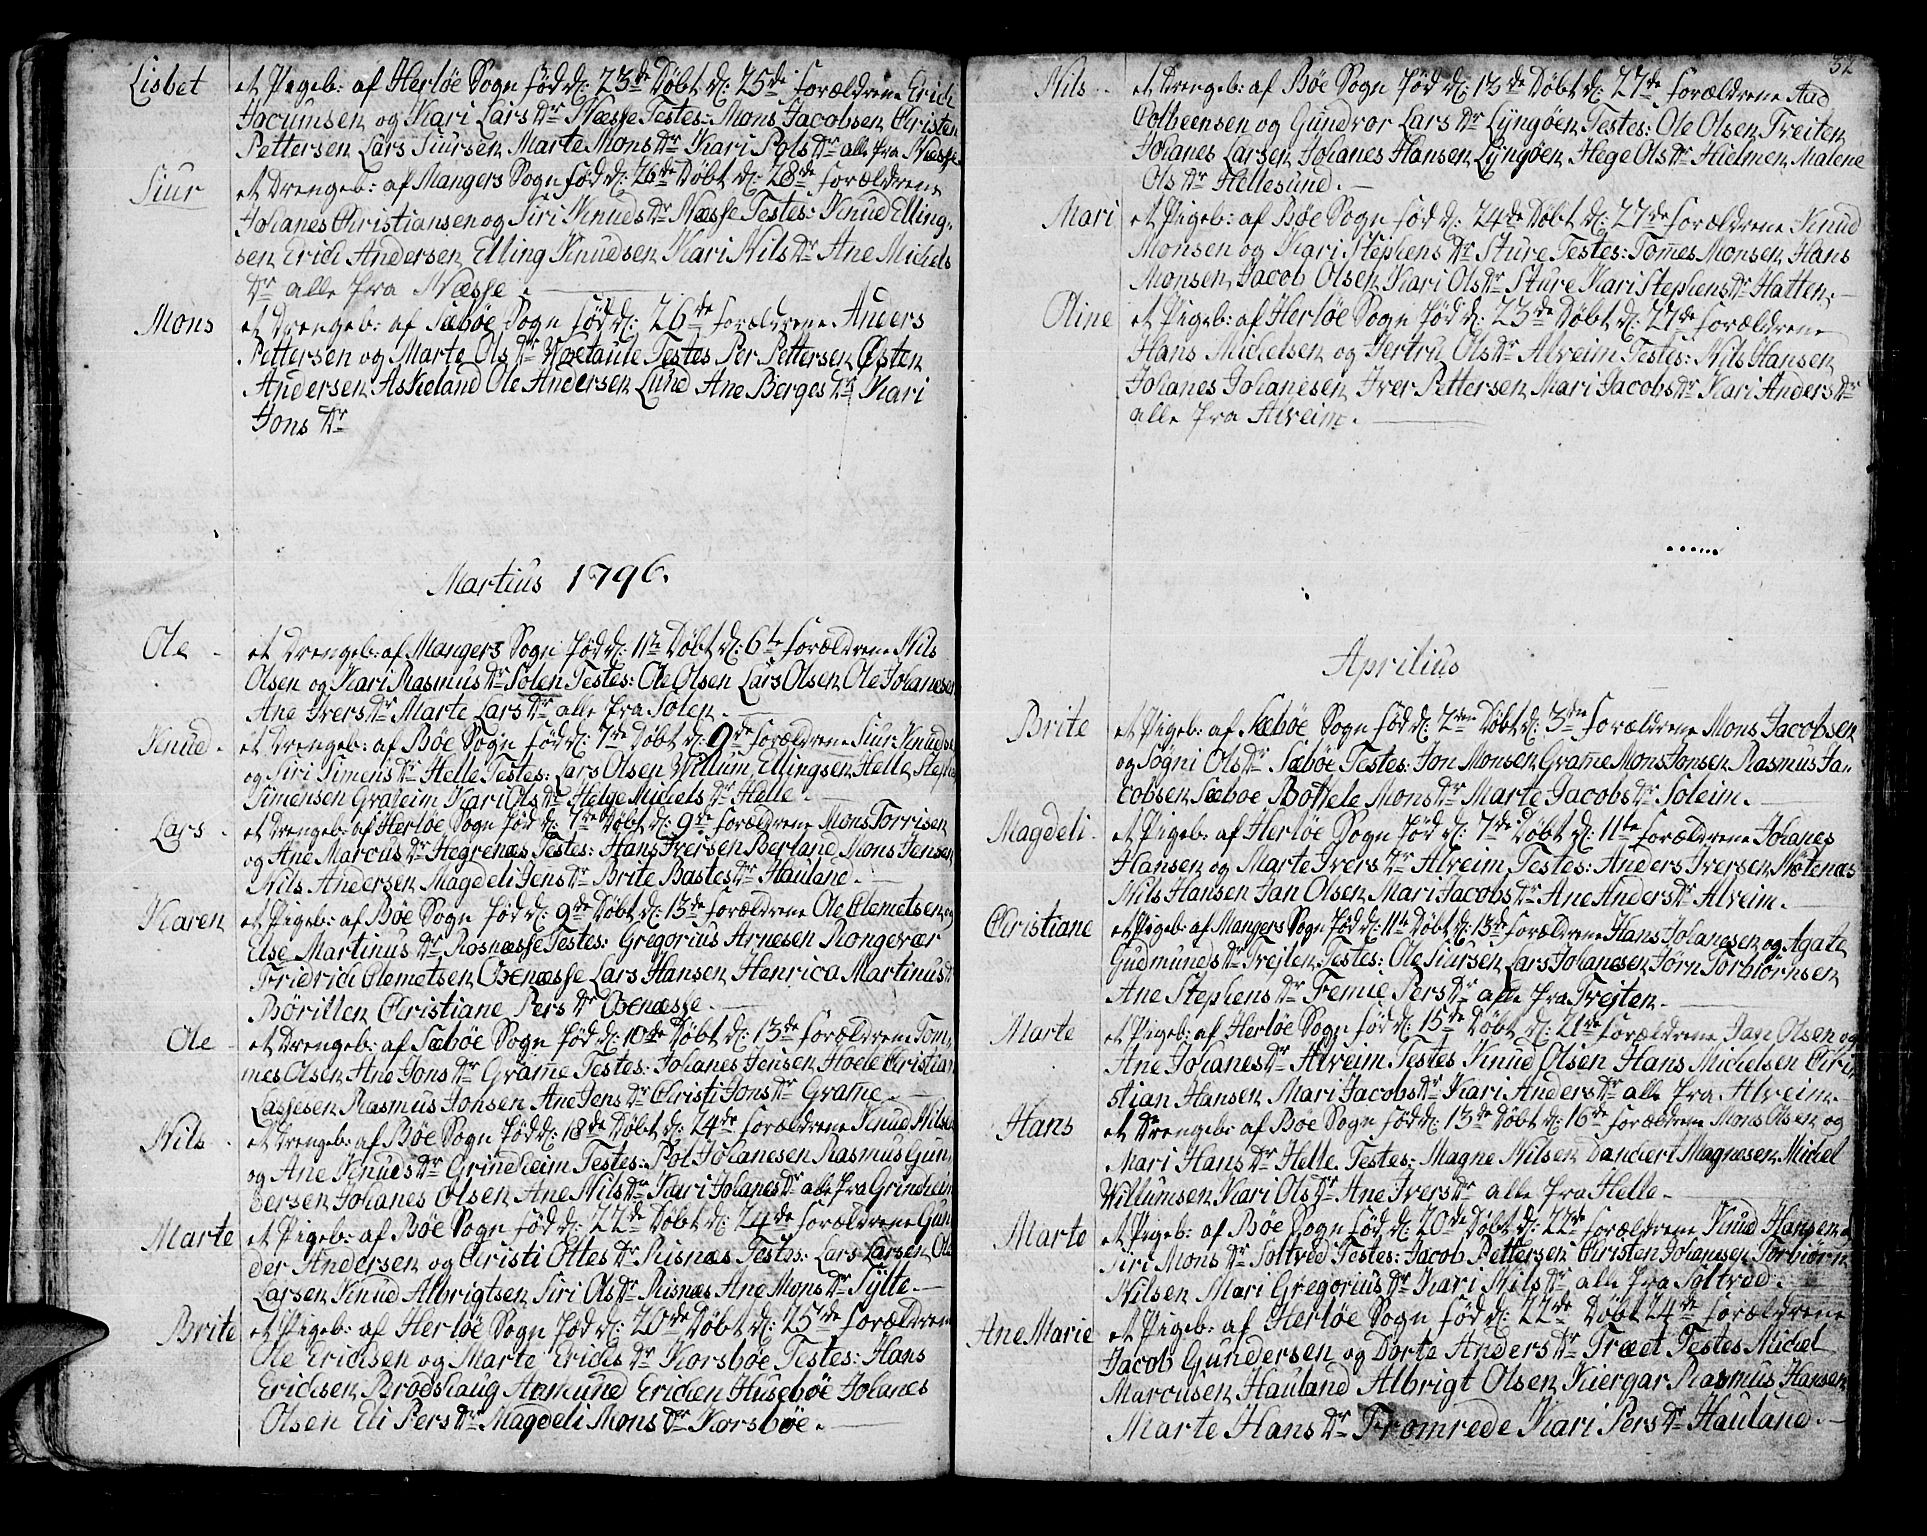 Lisbet et Pigeb: af Herløe Sogn fød d: 23de Døbt d: 25de forældrene Erich
Jacumsen og Kari Lars Dr Næsse Testes: Mons Jacobsen Christen
Pettersen Lars Siursen Marte Mons Dr Kari Pols Dr alle fra Næsse
Siur et Drengeb: af Mangers Sogn fød d: 26de Døbt d: 28de forældrene
Johanes Christiansen og Siri Knuds Dr Næsse Testes: Knud Elling-
sen Erich Andersen Elling Knudsen Kari Nils Dr Ane Michels
Dr alle fra Næsse.
Mons et Drengeb: af Sæbøe Sogn fød d: 26de forældrene Anders
Pettersen og Marte Ols Dr Testes Per Pettersen Østen
Andersen Askeland Ole Andersen Lund Ane Berges Dr Kari
Jons Dr
Martius 1796.
Ole - et Drengeb: af Mangers Sogn fød d: 1ste Døbt d: 6te forældrene Nils
Olsen og Kari Rasmus Dr Solen Testes: Ole Olsen Lars Olsen Ole Johanesen
Ane Ivers Dr Marte Lars Dr alle fra Solen.
Knud - et Drengeb: af Bøe Sogn fød d: 7de Døbt d: 9de forældrene Siur Knuds
og Siri Simens Dr Helle Testes: Lars Olsen Willum Ellingsen Helle Stephen
Simensen Graleim Kari Ols Dr Helge Michels Dr Helle.
Lars - et Drengeb: af Herløe Sogn fød d: 7de Døbt d: 9de forældrene Mons Torrisen
og Ane Marcus Dr Hegrenæs Testes: Hans Iversen Berland Mons Jensen
Nils Andersen Magdeli Jens Dr Brite Bastes Dr Hauland.
Karen et Pigeb: af Bøe Sogn fød d: 9de Døbt d: 13de forældrene Ole Clemetsen og
Else Martinus Dr Rosnæsse Testes: Gregorius Arnesen Rongevær
Fridrich Clemetsen Oxnæsse Lars Hansen Henrica Martinus Dr
Børillen Christiane Pers Dr Oxnæsse.
Ole - et Drengeb: af Sæbøe Sogn fød d: 10de Døbt d: 13de forældrene Tom-
mes Olsen Ane Jons Dr Grame Testes: Johanes Jensen Hoele Christian
Lassesen Rasmus Jonsen Ane Jens Dr Christi Jons Dr Grame.
Nils - et Drengeb: af Bøe Sogn fød d: 18de Døbt d: 24de forældrene Knud Nilsen
og Ane Knuds Dr Grindheim Testes: Pol Johanesen Rasmus Gun-
dersen Johanes Olsen Ane Nils Dr Kari Johanes Dr alle fra Grindheim
Marte et Pigeb: af Bøe Sogn fød d: 22de Døbt d: 24de forældrene Gun-
der Andersen og Christi Ottes Dr Risnæs Testes: Lars Larsen Ole
Larsen Knud Albrigtsen Siri Ols Dr Risnæs Ane Mons Dr Sylte.
Brite et Pigeb: af Herløe Sogn fød d: 20de Døbt d: 25de forældrene
Ole Erichsen og Marte Erichs Dr Korsbøe Testes: Hans
Erichsen Brodshaug Asmund Erichen Husebøe Johanes
Olsen Eli Pers Dr Magdeli Mons Dr Korsbøe.
32
Nils - et Drengeb: af Bøe Sogn fød d: 13de Døbt d: 27de forældrene Aad
Colbeensen og Gundvor Lars Dr Lyngøen Testes: Ole Olsen Treiten
Johanes Larsen Johanes Hansen Lyngøen Hege Ols Dr Hielmen Malene
Ols Dr Hellesund.
Mari et Pigeb: af Bøe Sogn fød d: 24de Døbt d: 27de forældrene Knud
Monsen og Kari Stephens Dr Sture Testes: Tomes Monsen Hans
Monsen Jacob Olsen Kari Ols Dr Sture Kari Stephens Dr Hatten.
Oline et Pigeb: af Herløe Sogn fød d: 23de Døbt d: 27de forældrene
Hans Michelsen og Jertru Ols Dr Alveim Testes: Nils Hansen
Johanes Johanesen Iver Pettersen Mari Jacobs Dr Kari Anders Dr
alle fra Alveim.
Aprilius
Brite et Pigeb: af Sæbøe Sogn fød d: 2den Døbt d: 3den forældrene Mons Jacobsen
og Søgni Ols Dr Sæbøe Testes: Jon Monsen Grame Mons Jonsen Rasmus Ja-
cobsen Sæbøe Bottele Mons Dr Marte Jacobs Dr Soleim.
Magdeli - et Pigeb: af Herløe Sogn fød d: 7de Døbt d: 11te forældrene Johanes
Hansen og Marte Ivers Dr Alveim Testes: Anders Iversen Nøtenæs
Nils Hansen Jan Olsen Mari Jacobs Dr Ane Anders Dr Alveim.
Christiane et Pigeb: af Mangers Sogn fød d: 11te Døbt d: 13de forældrene Hans Johanesen og Agate
Gudmunds Dr Trejten Testes: Ole Siursen Lars Johanesen Jørn Torbiørnsen
Ane Stephens Dr Femie Pers Dr alle fra Trejten.
Marte et Pigeb: af Herløe Sogn fød d: 15de Døbt d: 21de forældrene Jan Olsen og
Ane Johanes Dr Alveim Testes Knud Olsen Hans Michelsen Chri-
stian Hansen Mari Jacobs Dr Kari Anders Dr alle fra Alveim.
Hans et Drengeb: af Bøe Sogn fød d: 13de Døbt d: 16de forældrene Mons Olsen og
Mari Hans Dr Helle. Testes: Magne Nilsen Danckert Magnesen Michel
Willumsen Kari Ols Dr Ane Ivers Dr alle fra Helle.
Marte et Pigeb: af Bøe Sogn fød d: 20de Døbt d: 22de forældrene Knud Hansen og
Siri Mons Dr Soltved Testes: Jacob Pettersen Christen Johanesen Torbiørn
Nilsen Mari Gregorius Dr Kari Nils Dr alle fra Soltved.
Ane Marie et Pigeb: af Herløe Sogn fød d: 22de Døbt 24de forældrene
Jacob Gundersen og Dorte Anders Dr Træet Testes Michel
Marcusen Hauland Albrigt Olsen Kiergar Rasmus Hansen
Marte Hans Dr Fromrede Kari Pers Dr Hauland.